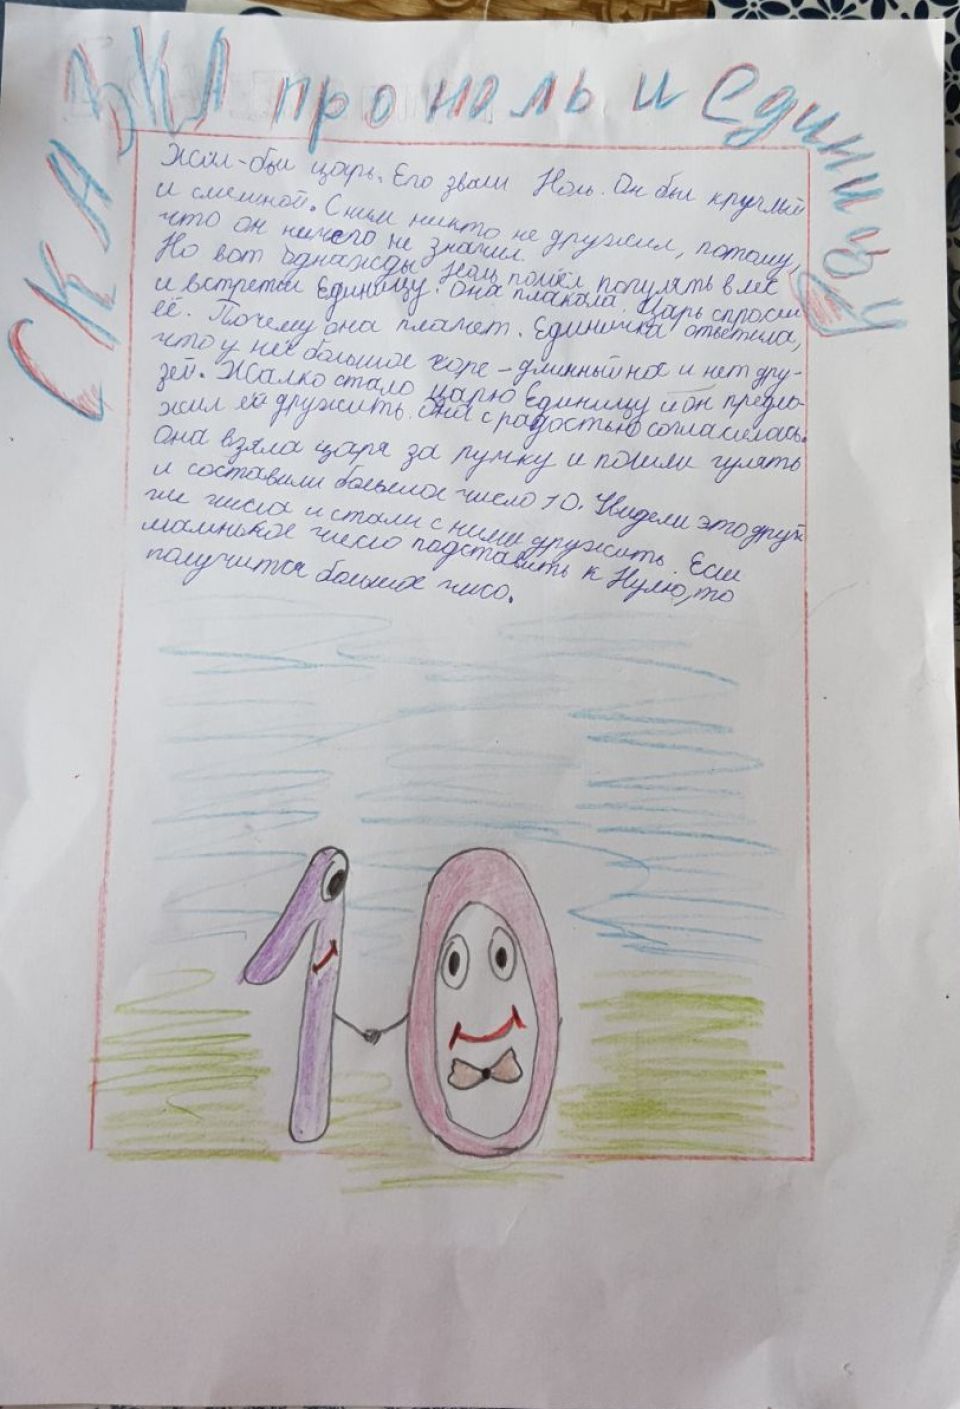 СКАЗКА про ноль и Единицу
Жил-был царь. Его звали Ноль. Он был круглый
и смешной. С ним никто не дружил, потому,
что он ничего не значил.
Но вот однажды Ноль пошёл погулять в лес
и встретил Единицу. Она плакала. Царь спросил
её. Почему она плачет. Единичка ответила,
что у неё большое горе - длинный нос и нет дру-
зей. Жалко стало царю Единицу и он предло-
жил ей дружить. Она с радостью согласилась.
Она взяла царя за ручку и пошли гулять
и составили большое число 10. Увидели это други
ие числа и стали с ними дружить. Если
маленькое число подставить к Нулю, то
получится большое чисо.